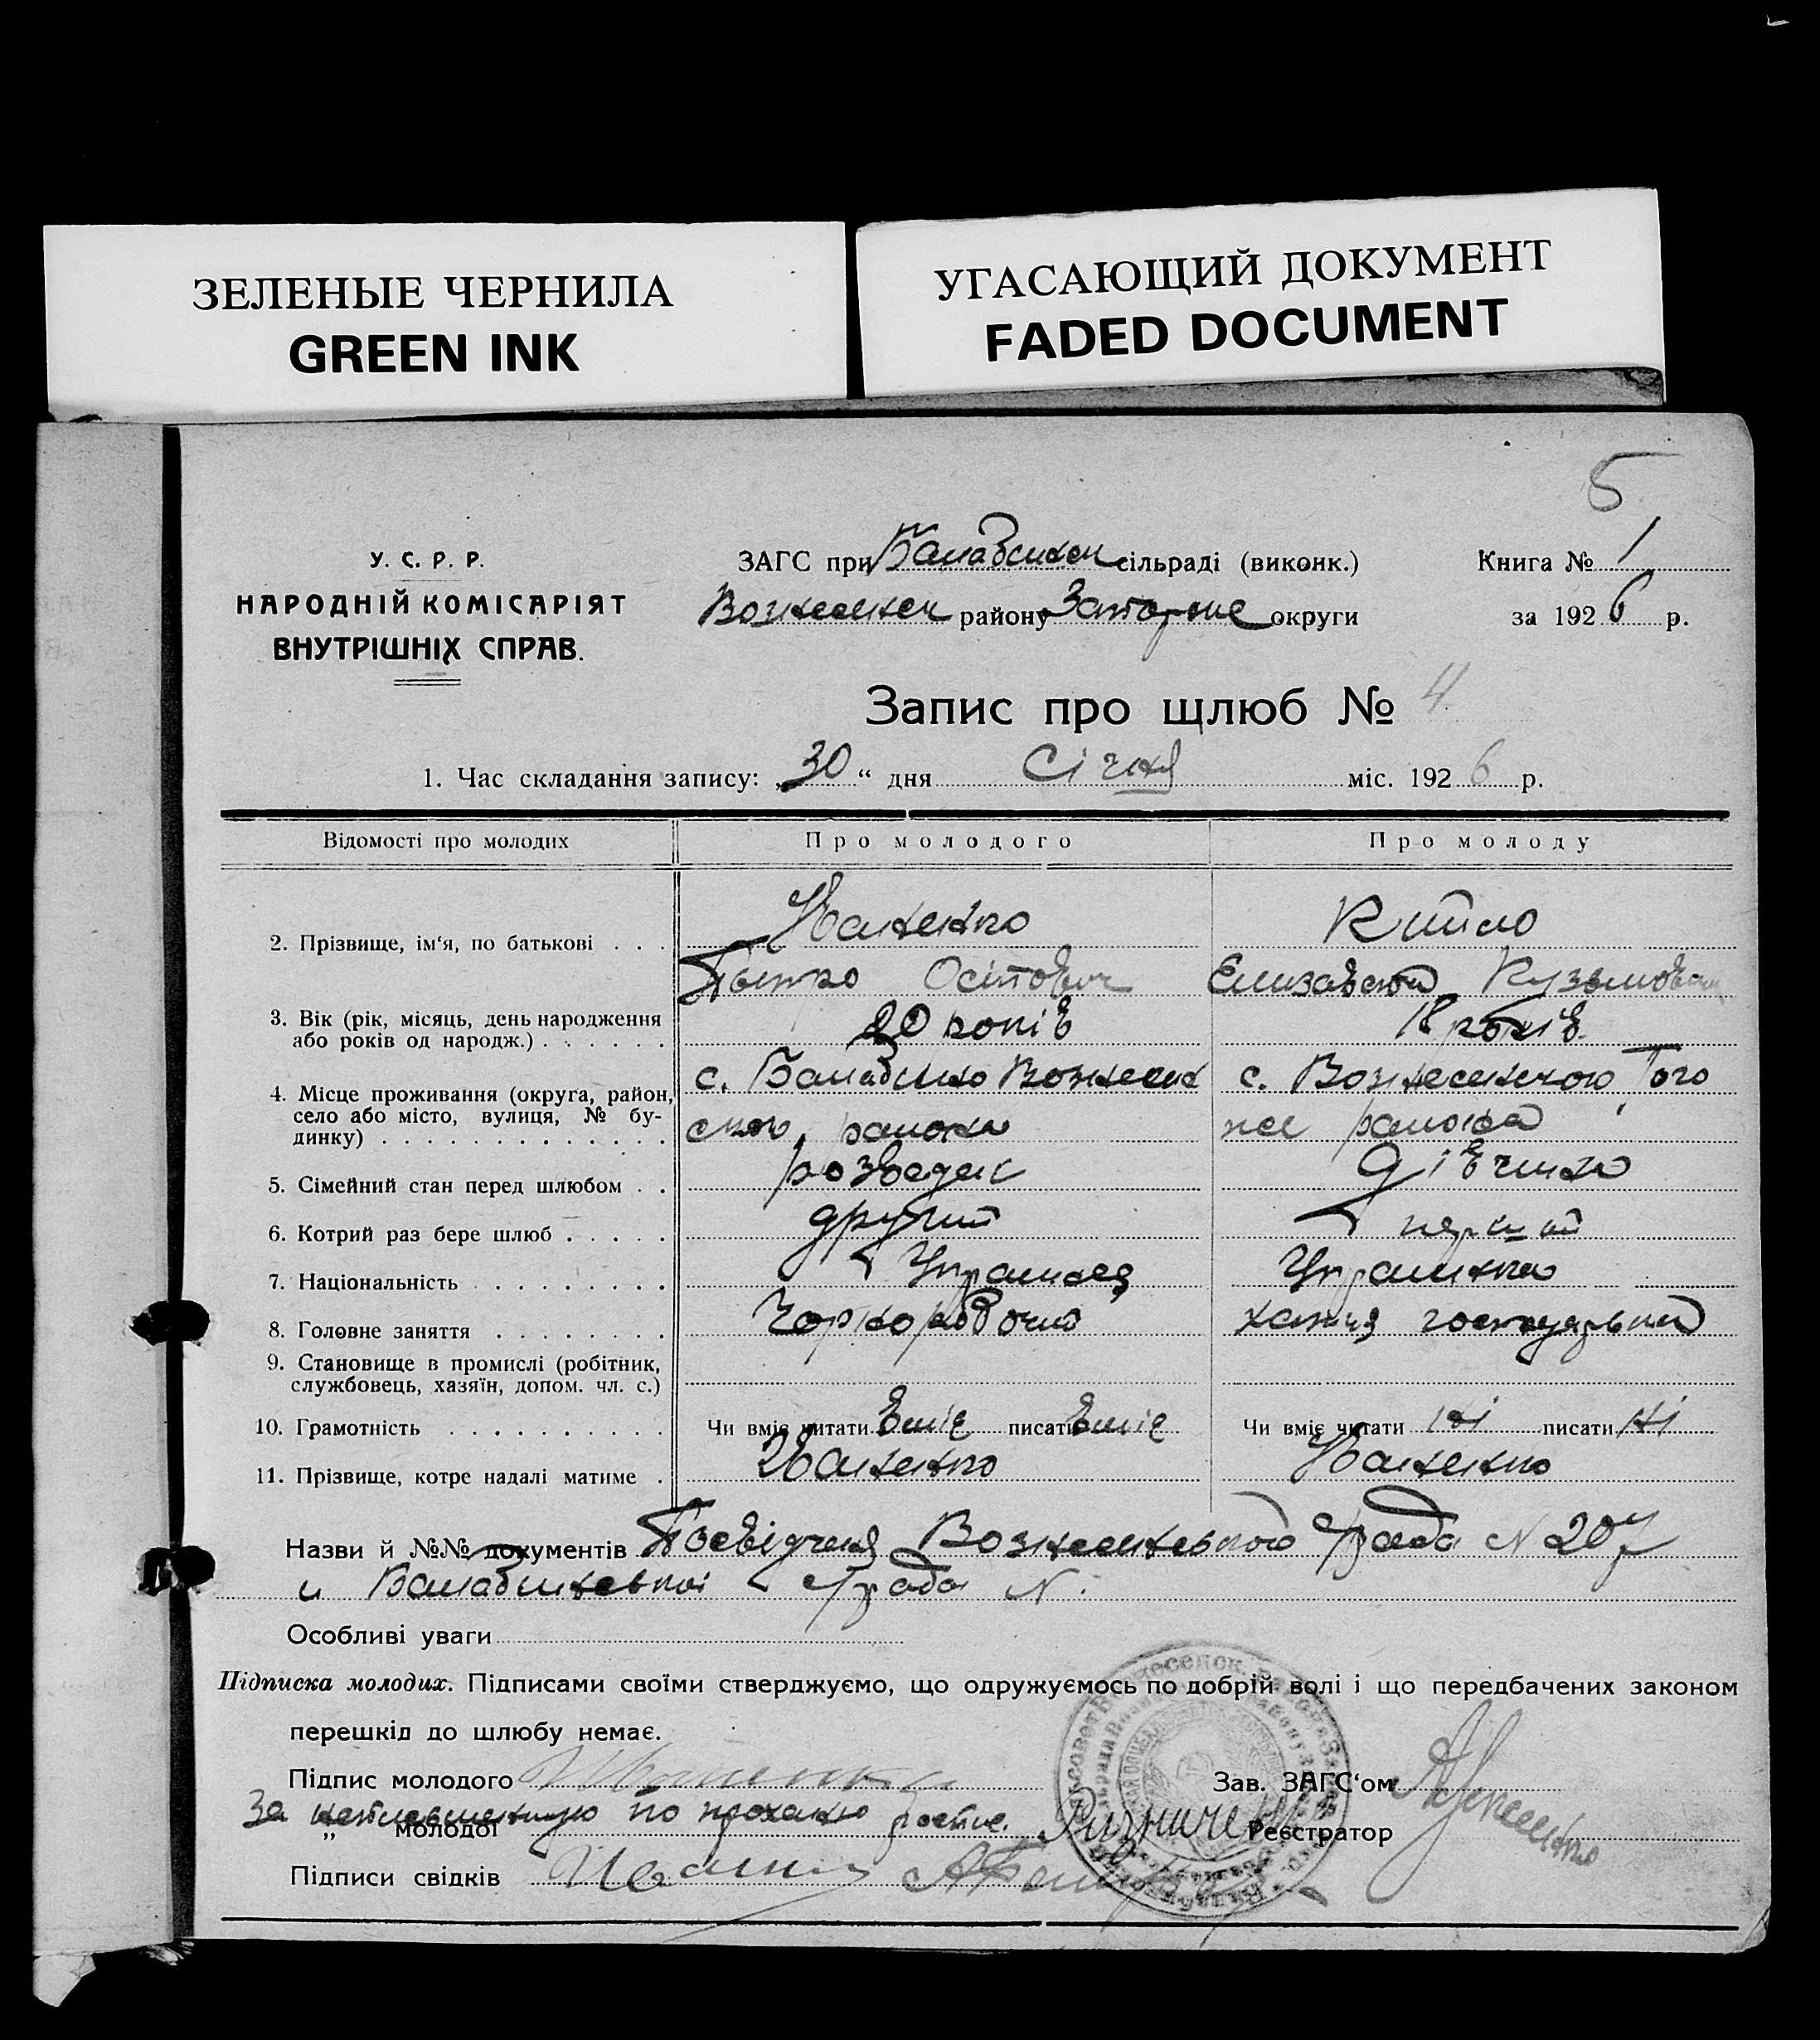 ЗЕЛЕНЫЕ ЧЕРНИЛА
GREEN INK
УГАСАЮЩИЙ ДОКУМЕНТ
FADED DOCUMENT
5
У. С. Р. Р.
НАРОДНІЙ КОМІСАРІЯТ
ВНУТРІШНІХ СПРАВ.
ЗАГС при Балабинськ сільраді (виконк.)
Вознесенськ району Запоріже округи
Книга № 1
за 1926 р.
Запис про щлюб № 4
1. Час складання запису: „30“ дня Січня міс. 1926 р.
Відомості про молодих Про молодого Про молоду
2. Прізвище, ім‘я, по батькові . . . Иваненко Китло
Пьетро Осіпович Елизавета Кузьмовна
3. Вік (рік, місяць, день народження
або років од народж.) . . . . . . 20 років 18 років
4. Місце проживання (округа, район,
село або місто, вулиця, № бу-
динку) . . . . . . . . . . . . .
с. Балабино Вознесен с. Вознесенского Того
ского района же района
5. Сімейний стан перед шлюбом . . розведен дівчина
6. Котрий раз бере шлюб . . . . . другий первий
7. Національність . . . . . . . . Украинец Украинка
8. Головне заняття . . . . . . . . Чорнорабочий хатня господарька
9. Становище в промислі (робітник,
службовець, хазяїн, допом. чл. с.)
10. Грамотність . . . . . . . . . . Чи вміє читати вміє писати вміє Чи вміє читати ні писати ні
11. Прізвище, котре надалі матиме . Иваненко Иваненко
Назви й №№ документів Посвідченя Вознесенського N 207
и Балабинськоі N.
Особливі уваги
Підписка молодих. Підписами своїми стверджуємо, що одружуємось по добрій волі і що передбачених законом
перешкід до шлюбу немає.
Підпис молодого Иваненко Зав. ЗАГС‘ом
За неписьменную по проханю
„ молодої Реєстратор
Підписи свідків